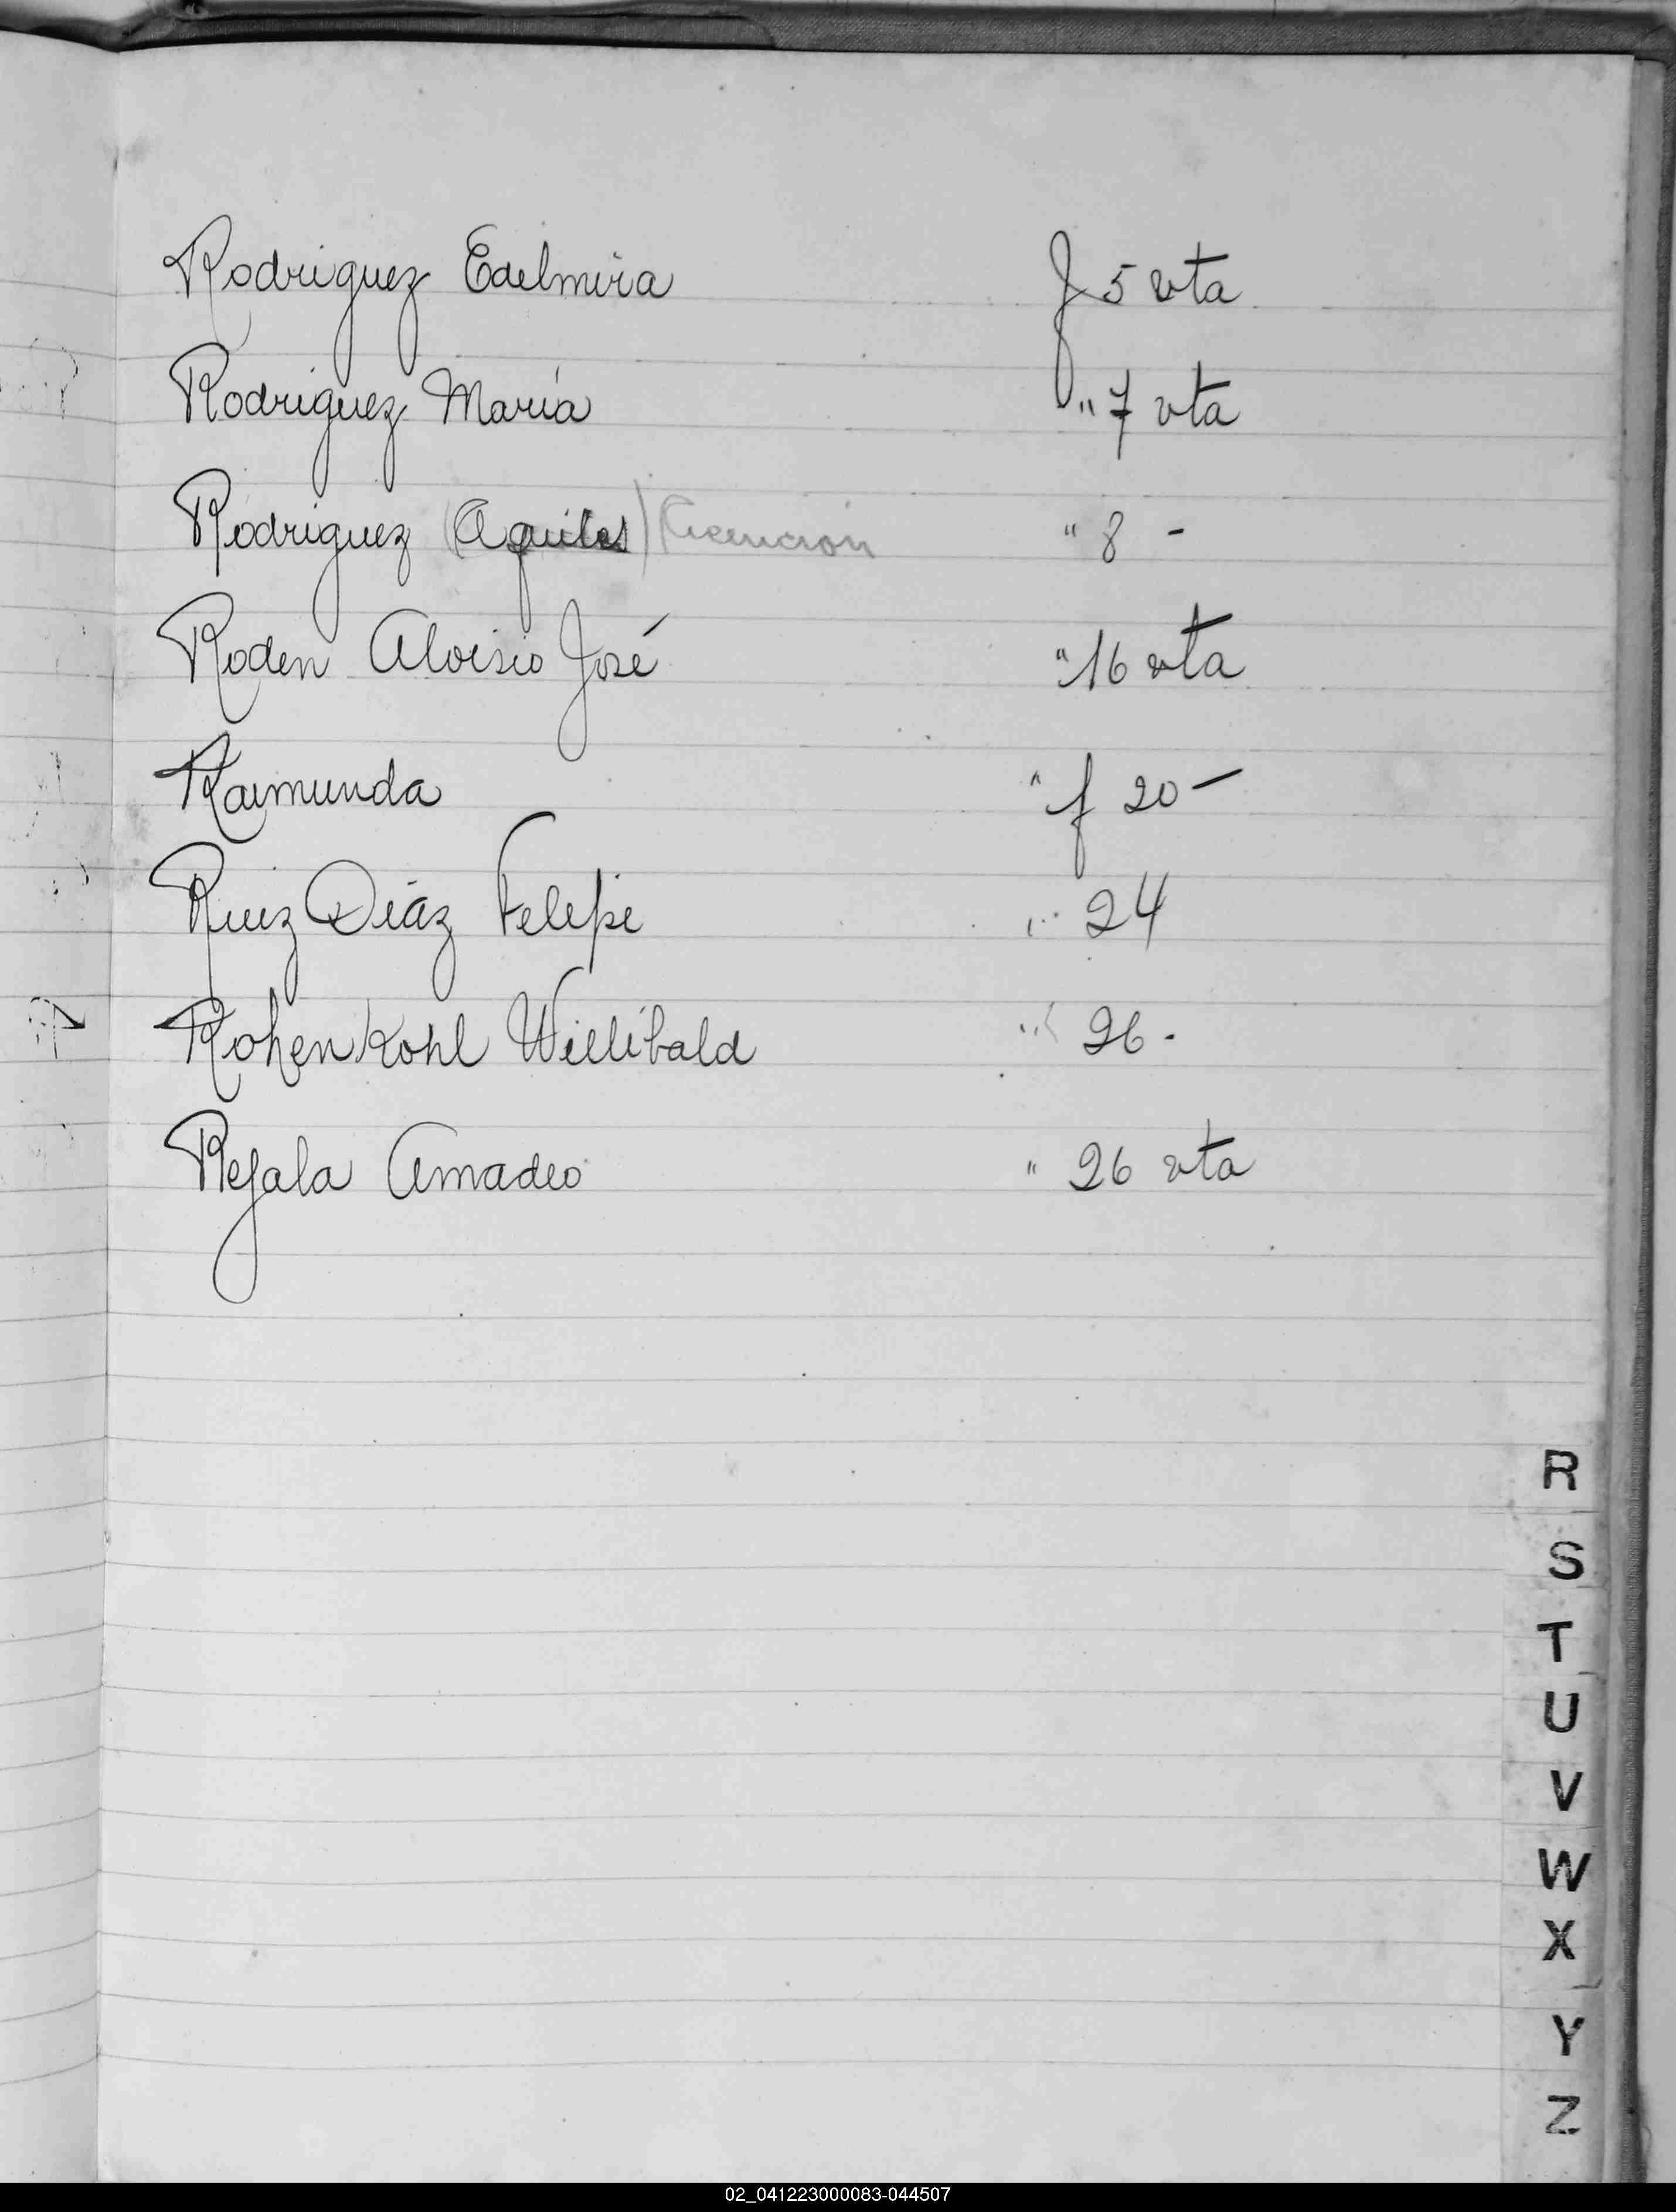 Rodriguez Edelmira f 5 vta
Rodriguez María " 7 vta
Rodriguez (Aquiles) " 8 -
Roden Aloisio José " 16 vta
Raimunda " f 20 -
Ruiz Díaz Felipe " 24
Rohenkohl Willibald " 26 -
Rejala Amadeo " 26 vta
R
S
T
U
V
W
X
Y
Z
02_041223000083-044507